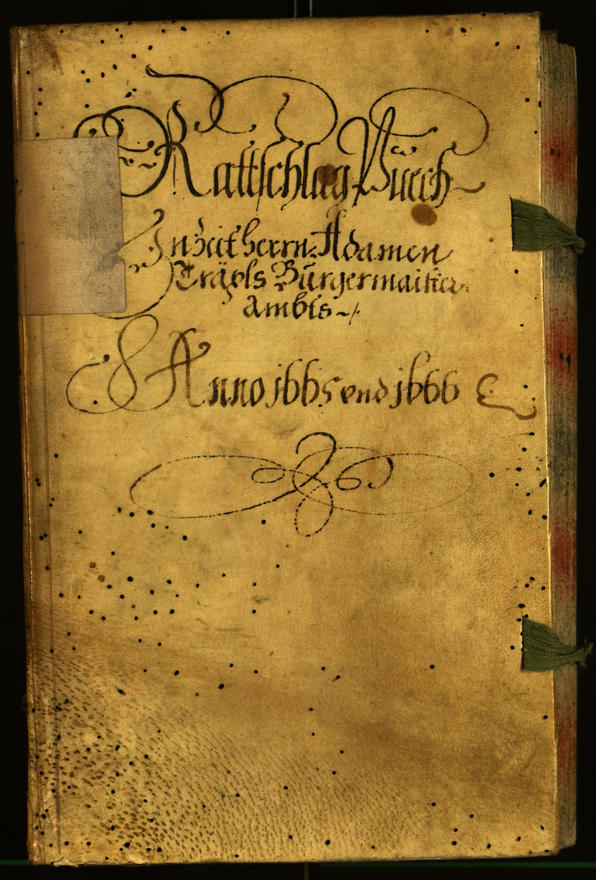 Rattschlag Büech
In Zeit herrn: Adamen
Burgermaister
Ambts
Anno 1665 und 1666